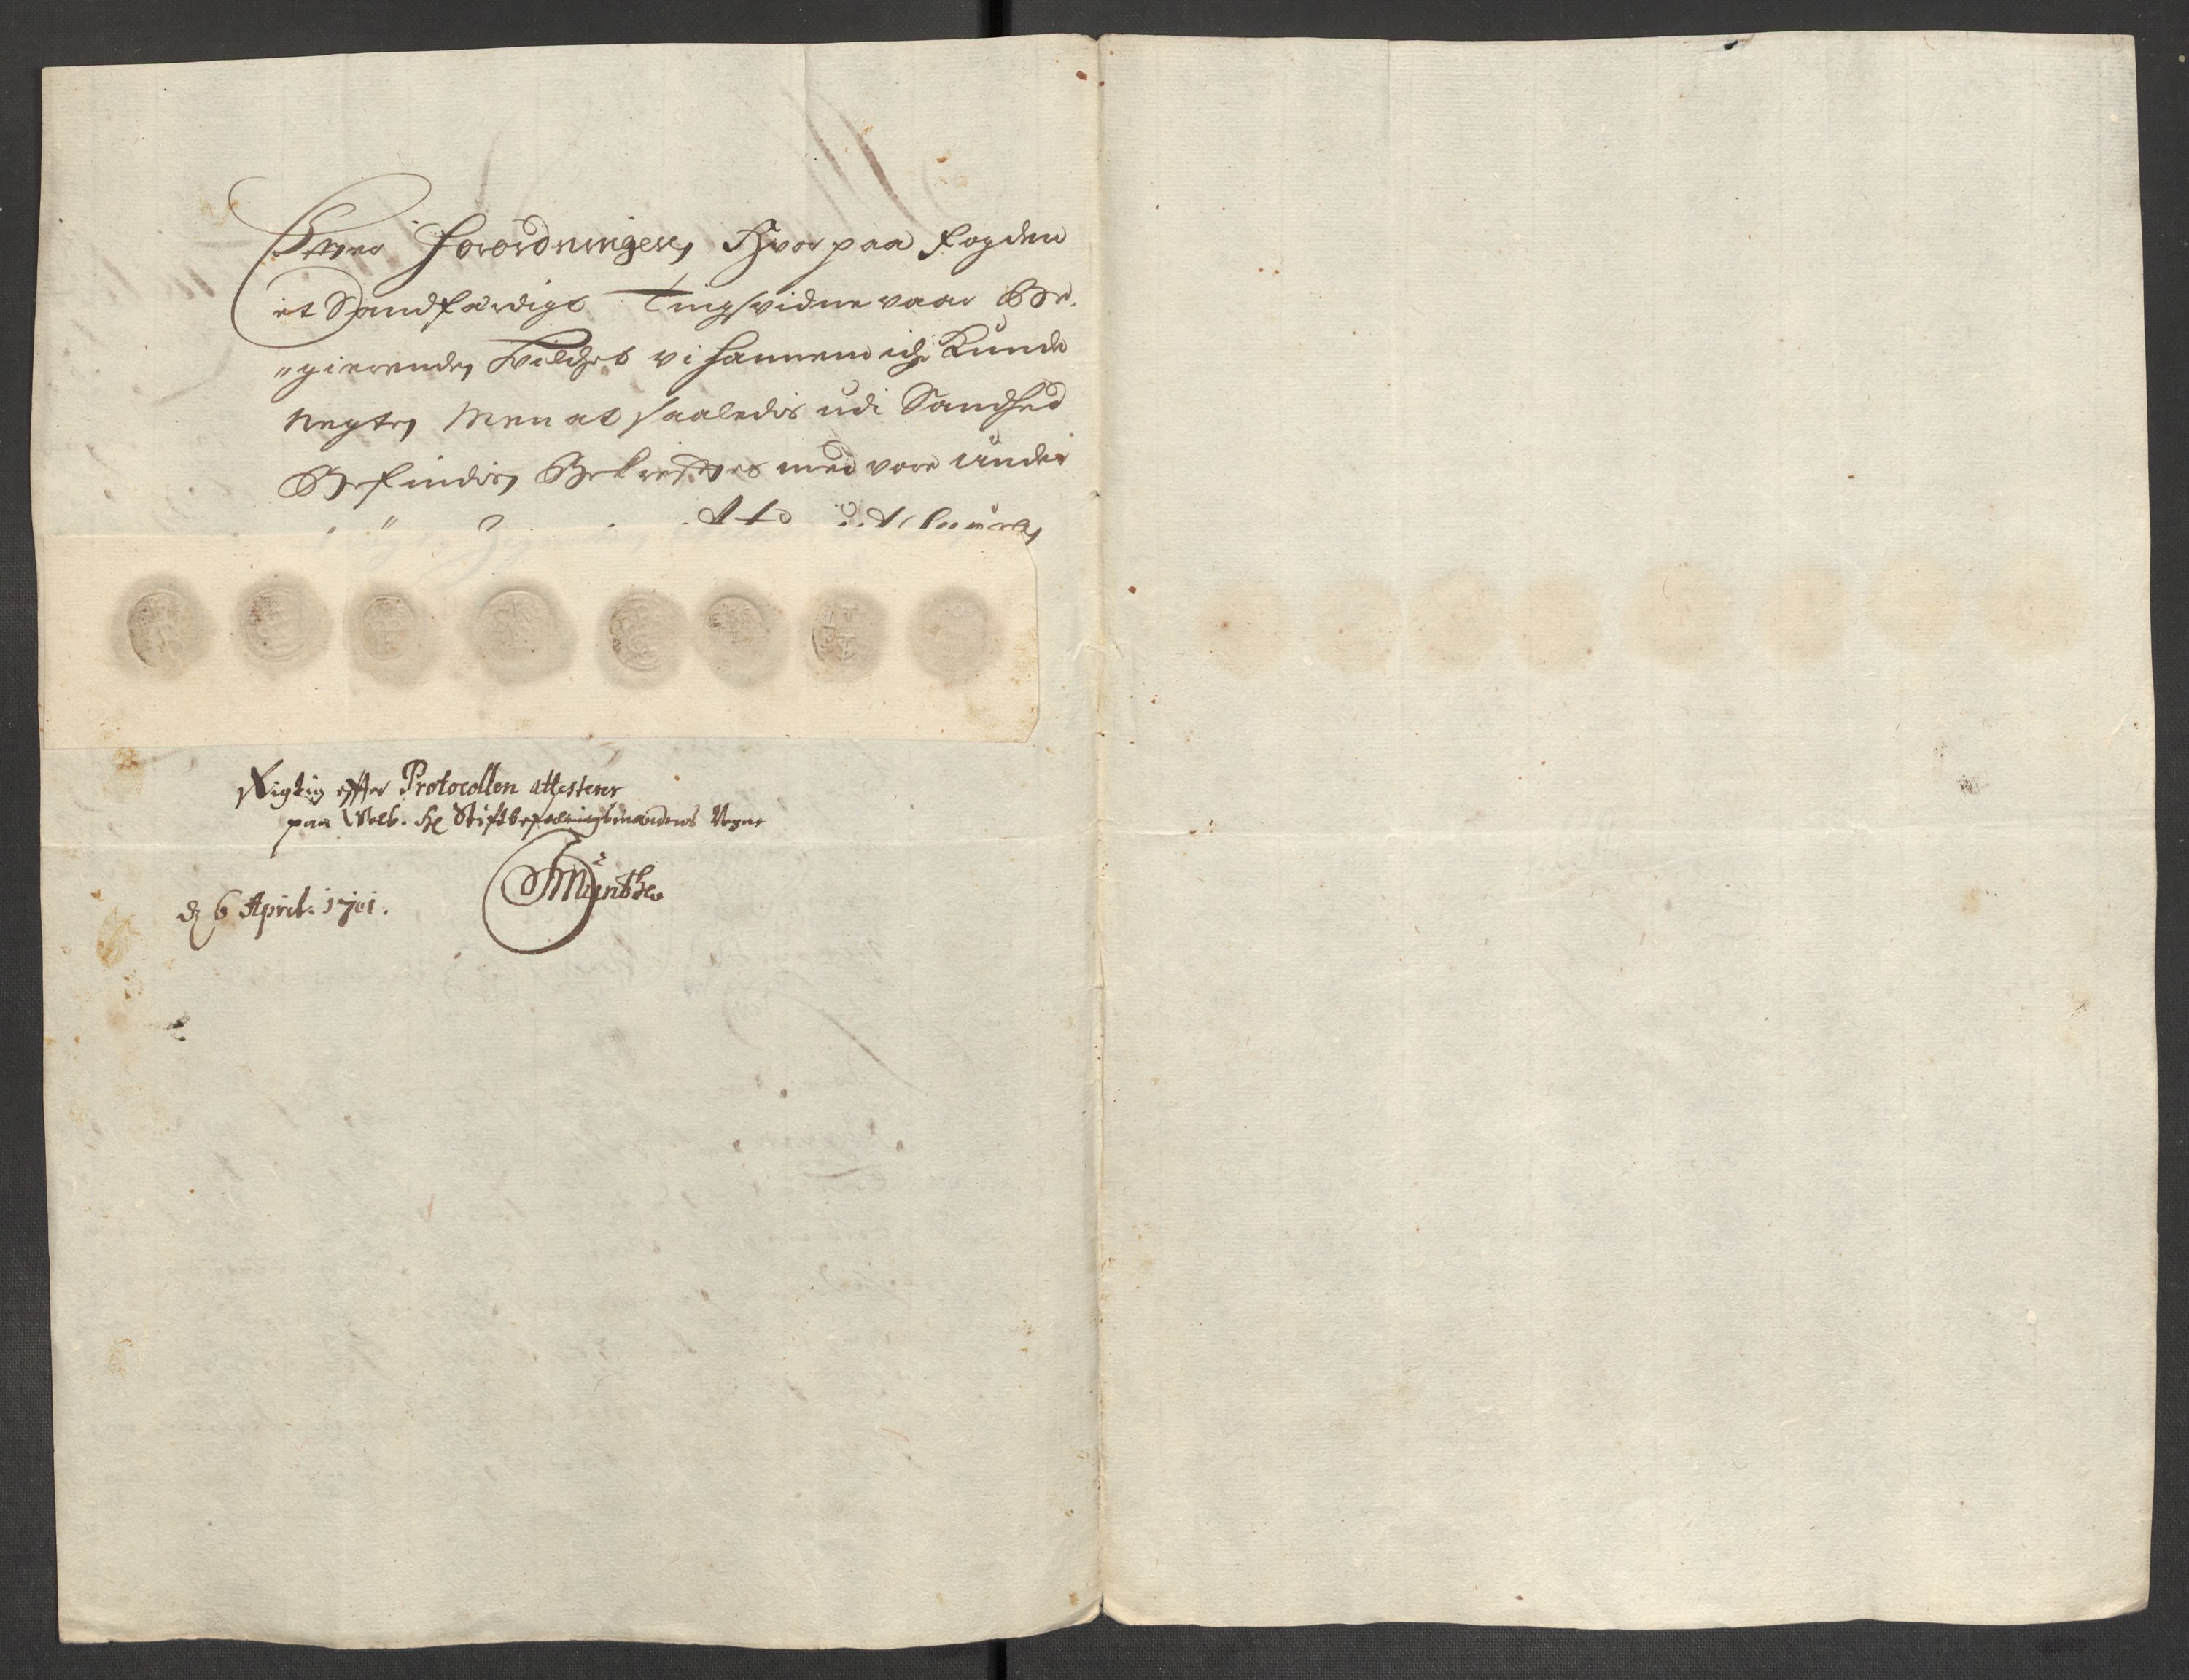 Forordningen, Hvor paa fogden
et Sandfærdige Tingsvidne vaar Be¬
"gierende, Hvilchet vi hannem iche Kunde
Negte, Men at saaledis udi Sandhed
Befindis, Bekreftes med vore under
Rigtig effter Protocollen attesterer
paa Welb. Hr Stiftbefalingsmandens Vegne
d 6 April. 1701.
Münthe